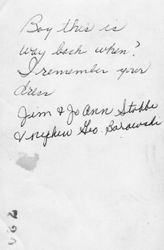 Boy this is
way back when?
I remember your
dress
Jim & JoAnn Stobbe
& nephew Geo. Borowski